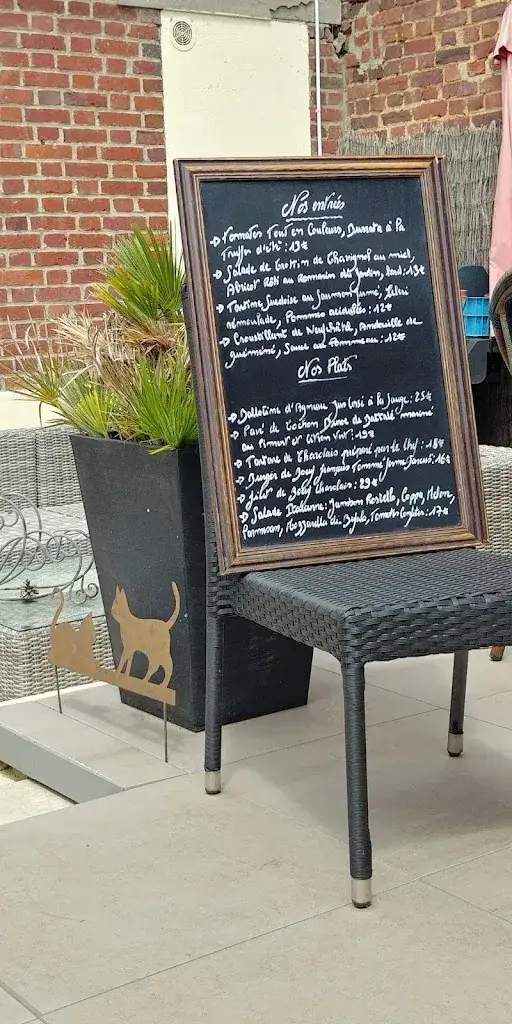 Nos entrées
Tomates Tout en Couleurs, Burrata à la
Truffe d'été : 13€
Salade de Crottin de Chavignol au miel,
Abricot Rôti au Romarin du Jardin, Lard : 13€
Tartine Suédoise au Saumon fumé, Céleri
rémoulade, Pommes acidulées : 12€
Croustillant de Neufchâtel, Andouille de
guémené, Sauce au Pommeau : 12€
Nos Plats
Ballotine d'Agneau Jus Corsé à la Sauge : 25€
Pavé de Cochon mariné
au Piment et Citron Vert : 19€
Tartare de Charolais préparé par le Chef : 18€
Burger de Boeuf français Tomme Jeune : 16€
de Boeuf Charolais : 29€
Salade Italienne : Jambon Rostello, Coppa, Melon,
Parmesan, Mozzarella di Bufala, Tomates Confites : 17€